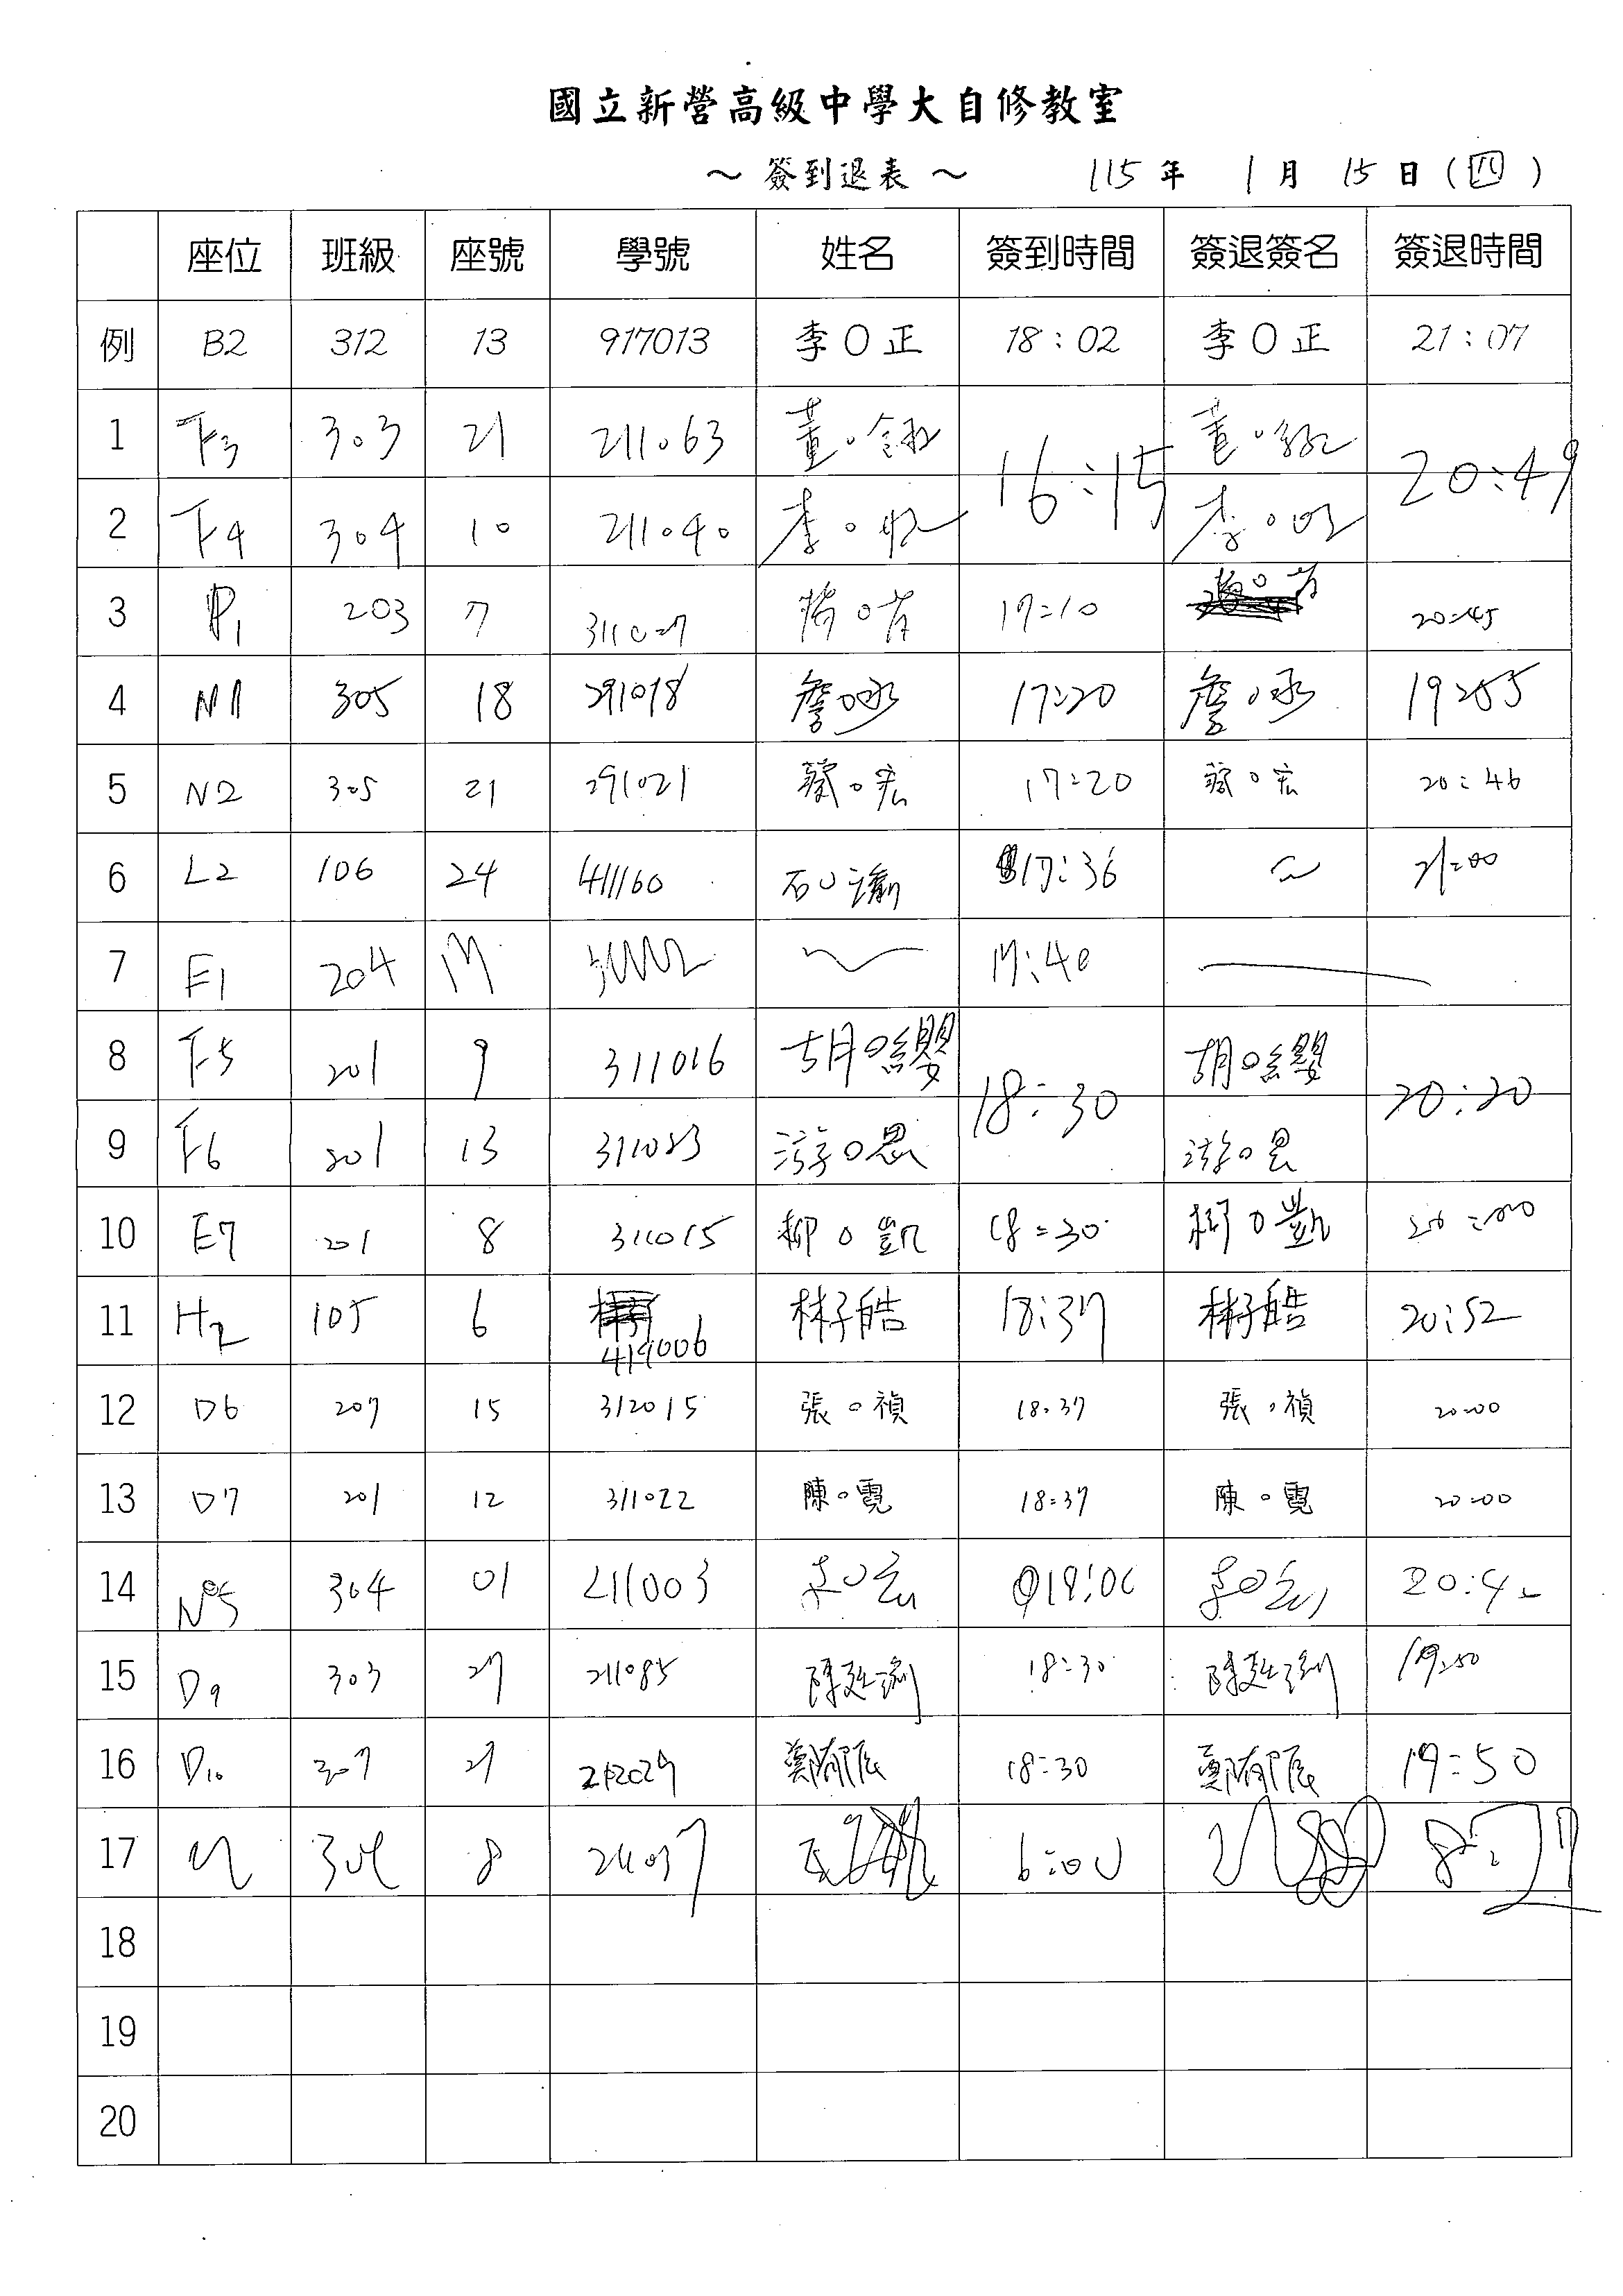 國立新營高級中學大自修教室
～ 簽到退表 ～ 115 年 1 月 15 日 (四)
座位 班級 座號 學號 姓名 簽到時間 簽退簽名 簽退時間
例 B2 312 13 917013 李O正 18:02 李O正 21:07
1 F3 303 21 211063 董O 16:15 董O 20:49
2 F4 304 10 211040 李O 李O
3 P1 203 7 311027 17:10 20:45
4 N1 305 18 291018 詹O承 17:20 詹O承 19:55
5 N2 305 21 291021 蔡O宏 17:20 蔡O宏 20:46
6 L2 106 24 411160 石O瑜 17:36 21:00
7 E1 204 17 17:40
8 F5 201 9 311016 胡O纓 18:30 胡O纓 20:20
9 F6 201 13 311023 游O恩 游O恩
10 E7 201 8 311015 柳O凱 18:30 柳O凱 20:00
11 H2 105 6 419006 林子皓 18:37 林子皓 20:52
12 D6 207 15 312015 張O禎 18:37 張O禎 20:00
13 D7 201 12 311022 陳O霓 18:37 陳O霓 20:00
14 N5 304 01 211003 李O宏 18:00 李O宏 20:42
15 D9 303 27 211085 陳 18:30 陳 19:50
16 D10 307 27 212029 鄭 18:30 鄭 19:50
17 8 6:00
18
19
20